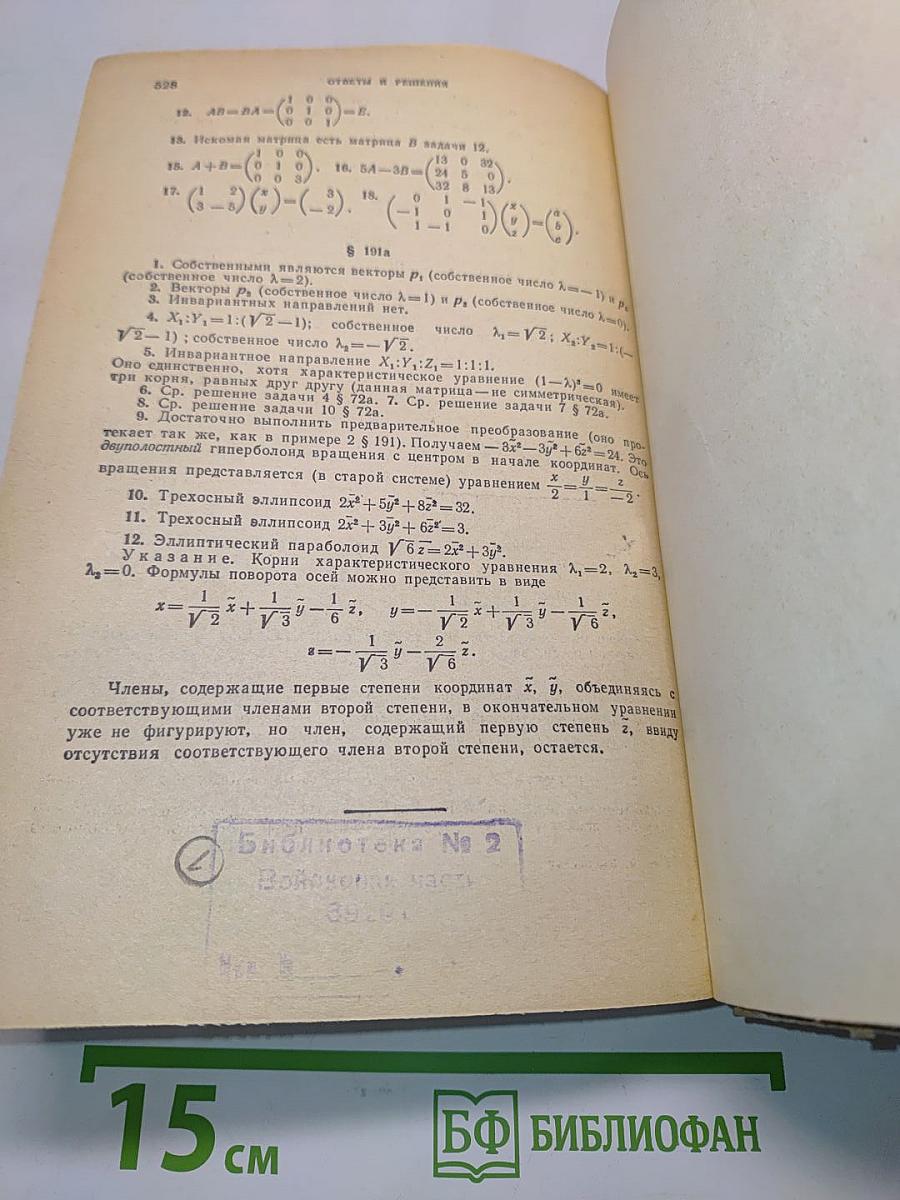 528 ОТВЕТЫ И РЕШЕНИЯ
12. AB=BA=(1 0 0; 0 1 0; 0 0 1)=E.
13. Искомая матрица есть матрица B задачи 12.
15. A+B=(1 0 0; 0 1 0; 0 0 3). 16. 5A—3B=(13 0 32; 24 5 0; 32 8 13).
17. (1 2; 3 —5)(x; y)=(3; —2). 18. (0 1 —1; —1 0 1; 1 —1 0)(x; y; z)=(a; b; c).
§ 191а
1. Собственными являются векторы p₁ (собственное число λ=—1) и p₂
(собственное число λ=2).
2. Векторы p₂ (собственное число λ=1) и p₃ (собственное число λ=0).
3. Инвариантных направлений нет.
4. X₁:Y₁=1:(√2—1); собственное число λ₁=√2; X₂:Y₂=1:(—
√2—1) ; собственное число λ₂=—√2.
5. Инвариантное направление X₁:Y₁:Z₁=1:1:1.
Оно единственно, хотя характеристическое уравнение (1—λ)³=0 имеет
три корня, равных друг другу (данная матрица—не симметрическая).
6. Ср. решение задачи 4 § 72а. 7. Ср. решение задачи 7 § 72а.
8. Ср. решение задачи 10 § 72а.
9. Достаточно выполнить предварительное преобразование (оно про-
текает так же, как в примере 2 § 191). Получаем —3x̄²—3ȳ²+6z̄²=24. Это
двуполостный гиперболоид вращения с центром в начале координат. Ось
вращения представляется (в старой системе) уравнением x/2=y/1=z/—2.
10. Трехосный эллипсоид 2x̄²+5ȳ²+8z̄²=32.
11. Трехосный эллипсоид 2x̄²+3ȳ²+6z̄²=3.
12. Эллиптический параболоид √6 z̄=2x̄²+3ȳ².
Указание. Корни характеристического уравнения λ₁=2, λ₂=3,
λ₃=0. Формулы поворота осей можно представить в виде
x=1/√2 x̃+1/√3 ỹ—1/6 z̃, y=—1/√2 x̃+1/√3 ỹ—1/√6 z̃,
z=—1/√3 ỹ—2/√6 z̃.
Члены, содержащие первые степени координат x̃, ỹ, объединяясь с
соответствующими членами второй степени, в окончательном уравнении
уже не фигурируют, но член, содержащий первую степень z̃, ввиду
отсутствия соответствующего члена второй степени, остается.
Библиотека № 2
Войсковая часть
15 см
БФ БИБЛИОФАН